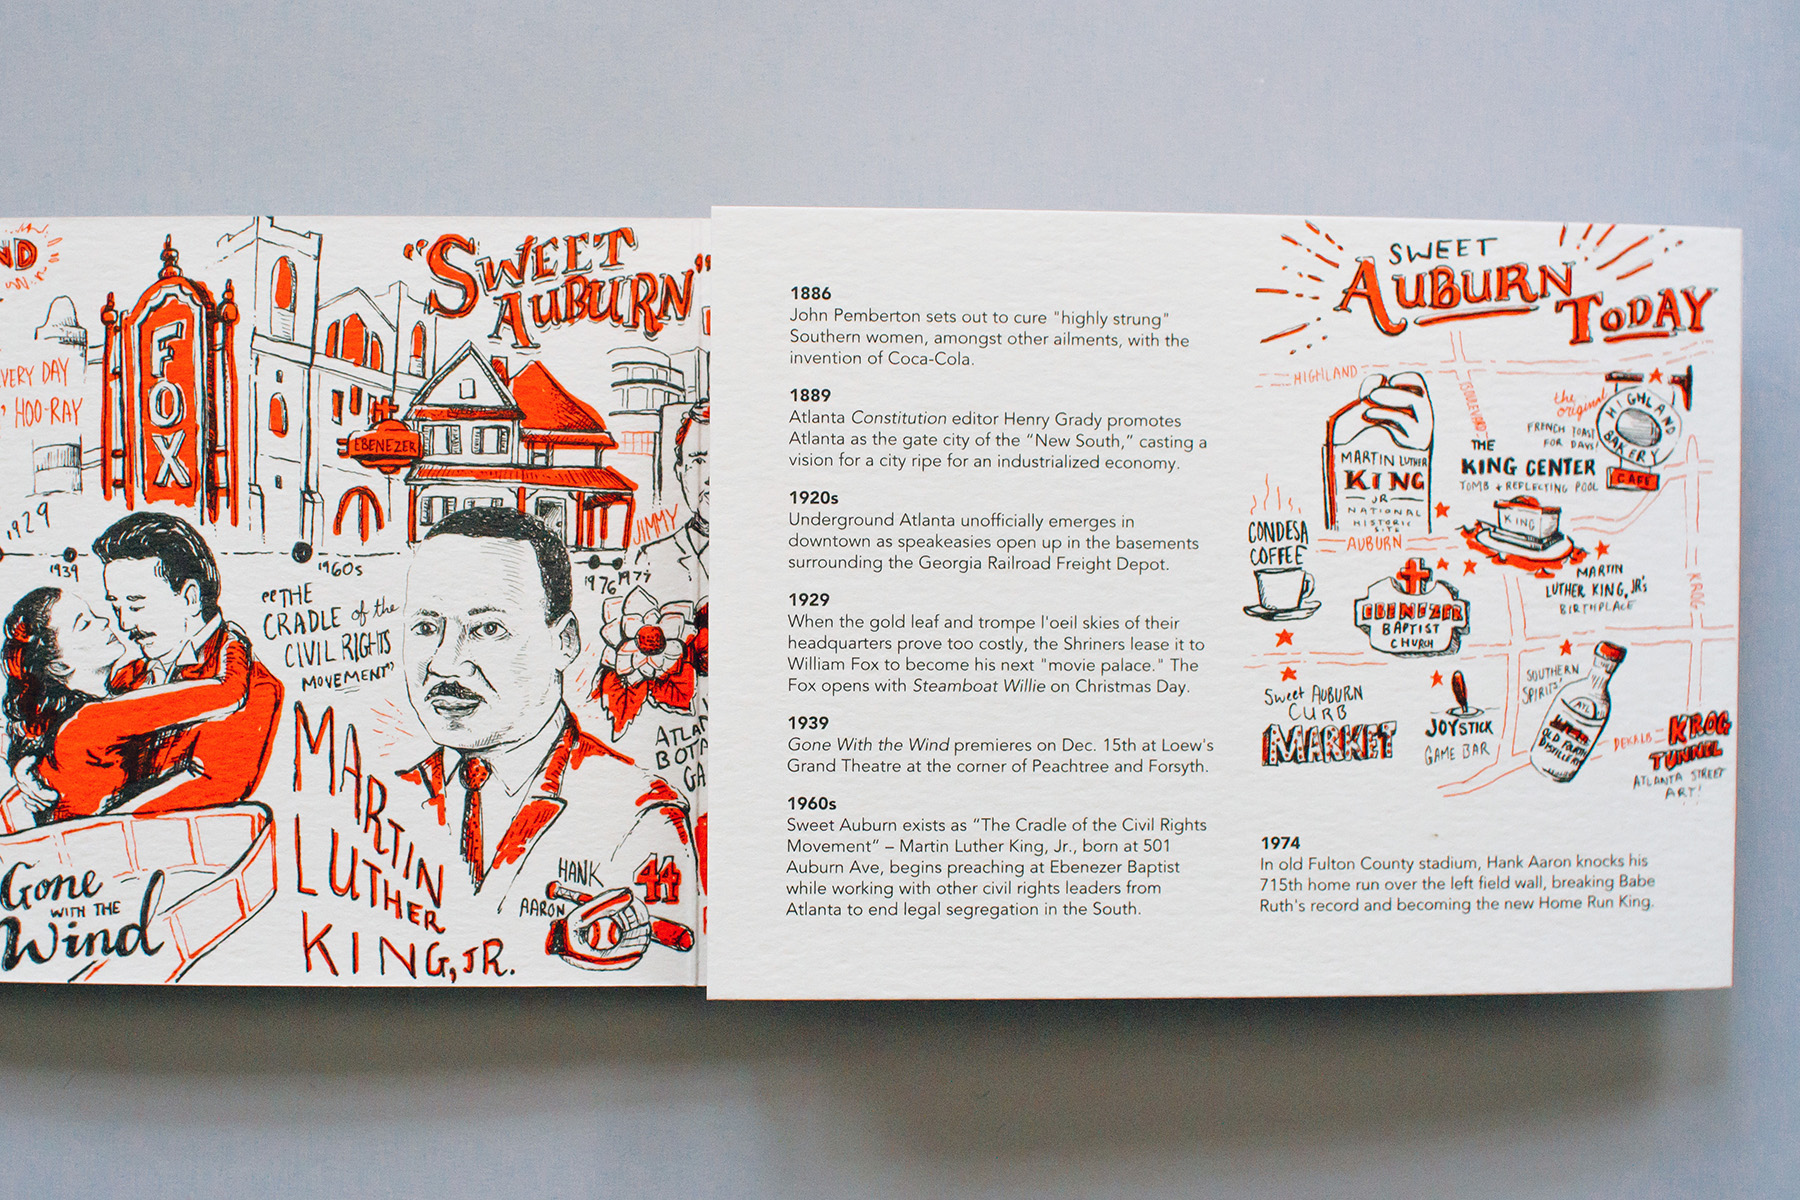 ND
VERY DAY
HOO-RAY
FOX
EBENEZER
"SWEET
AUBURN"
1929
1939
1960s
1976
JIMMY
"THE
CRADLE of the
CIVIL RIGHTS
MOVEMENT"
MARTIN
LUTHER
KING, JR.
Gone
WITH THE
Wind
HANK
AARON
44
1886
John Pemberton sets out to cure "highly strung"
Southern women, amongst other ailments, with the
invention of Coca-Cola.
1889
Atlanta Constitution editor Henry Grady promotes
Atlanta as the gate city of the “New South,” casting a
vision for a city ripe for an industrialized economy.
1920s
Underground Atlanta unofficially emerges in
downtown as speakeasies open up in the basements
surrounding the Georgia Railroad Freight Depot.
1929
When the gold leaf and trompe l'oeil skies of their
headquarters prove too costly, the Shriners lease it to
William Fox to become his next "movie palace." The
Fox opens with Steamboat Willie on Christmas Day.
1939
Gone With the Wind premieres on Dec. 15th at Loew's
Grand Theatre at the corner of Peachtree and Forsyth.
1960s
Sweet Auburn exists as “The Cradle of the Civil Rights
Movement“ – Martin Luther King, Jr., born at 501
Auburn Ave, begins preaching at Ebenezer Baptist
while working with other civil rights leaders from
Atlanta to end legal segregation in the South.
SWEET
AUBURN
TODAY
HIGHLAND
BOULEVARD
MARTIN LUTHER
KING
JR
NATIONAL
HISTORIC
SITE
the
original
HIGHLAND
BAKERY
CAFE
FRENCH TOAST
FOR DAYS!
THE
KING CENTER
TOMB + REFLECTING POOL
KING
CONDESA
COFFEE
AUBURN
MARTIN
LUTHER KING, JR'S
BIRTHPLACE
KROG
EBENEZER
BAPTIST
CHURCH
Sweet AUBURN
CURB
MARKET
JOYSTICK
GAME BAR
SOUTHERN
SPIRITS'
ATL
OLD FOURTH
DISTILLERY
DEKALB
KROG
TUNNEL
ATLANTA STREET
ART!
1974
In old Fulton County stadium, Hank Aaron knocks his
715th home run over the left field wall, breaking Babe
Ruth's record and becoming the new Home Run King.